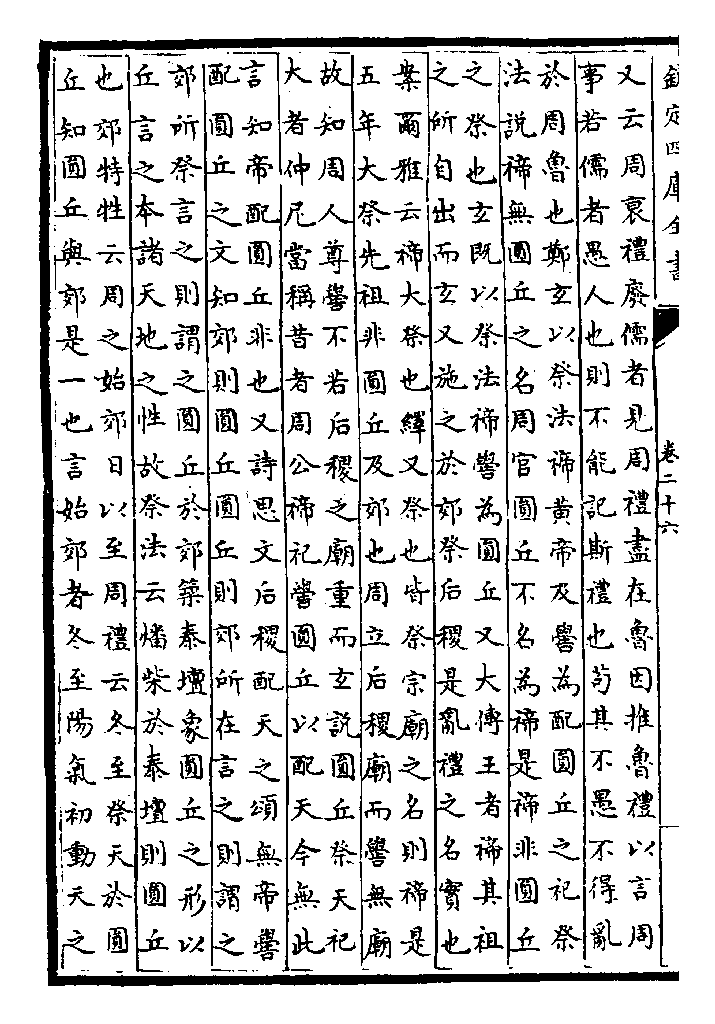 欽定四庫全書
卷二十六
又云周衰禮廢儒者見周禮盡在魯因推魯禮以言周
事若儒者愚人也則不能記斯禮也苟其不愚不得亂
於周魯也鄭玄以祭法禘黃帝及嚳為配圓丘之祀祭
法説禘無圓丘之名周官圓丘不名為禘是禘非圓丘
之祭也玄既以祭法禘嚳為圓丘又大傳王者禘其祖
之所自出而玄又施之於郊祭后稷是亂禮之名實也
案爾雅云禘大祭也繹又祭也皆祭宗廟之名則禘是
五年大祭先祖非圓丘及郊也周立后稷廟而嚳無廟
故知周人尊嚳不若后稷之廟重而玄説圓丘祭天祀
大者仲尼當稱昔者周公禘祀嚳圓丘以配天今無此
言知帝配圓丘非也又詩思文后稷配天之頌無帝嚳
配圓丘之文知郊則圓丘圓丘則郊所在言之則謂之
郊所祭言之則謂之圓丘於郊築泰壇象圓丘之形以
丘言之本諸天地之性故祭法云燔柴於泰壇則圓丘
也郊特牲云周之始郊日以至周禮云冬至祭天於圓
丘知圓丘與郊是一也言始郊者冬至陽氣初動天之